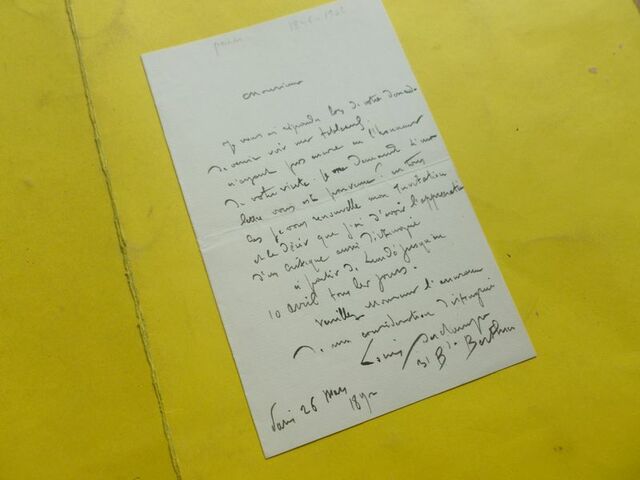 Paris 18-6-1922
Monsieur
Je vous ai répondu lors de votre demande
de venir voir mes tableaux
n'ayant pas encore eu l'honneur
de votre visite je me demande si ma
lettre vous est parvenue. en tous
cas je vous renouvelle mon invitation
et le désir que j'ai d'avoir l'appréciation
d'un critique aussi distingué
à partir de Lundi jusqu'au
10 avril tous les jours.
Veuillez Monsieur l'assurance
de ma considération distinguée
Louis
31 Bd Berthier
Paris 26 mars
189